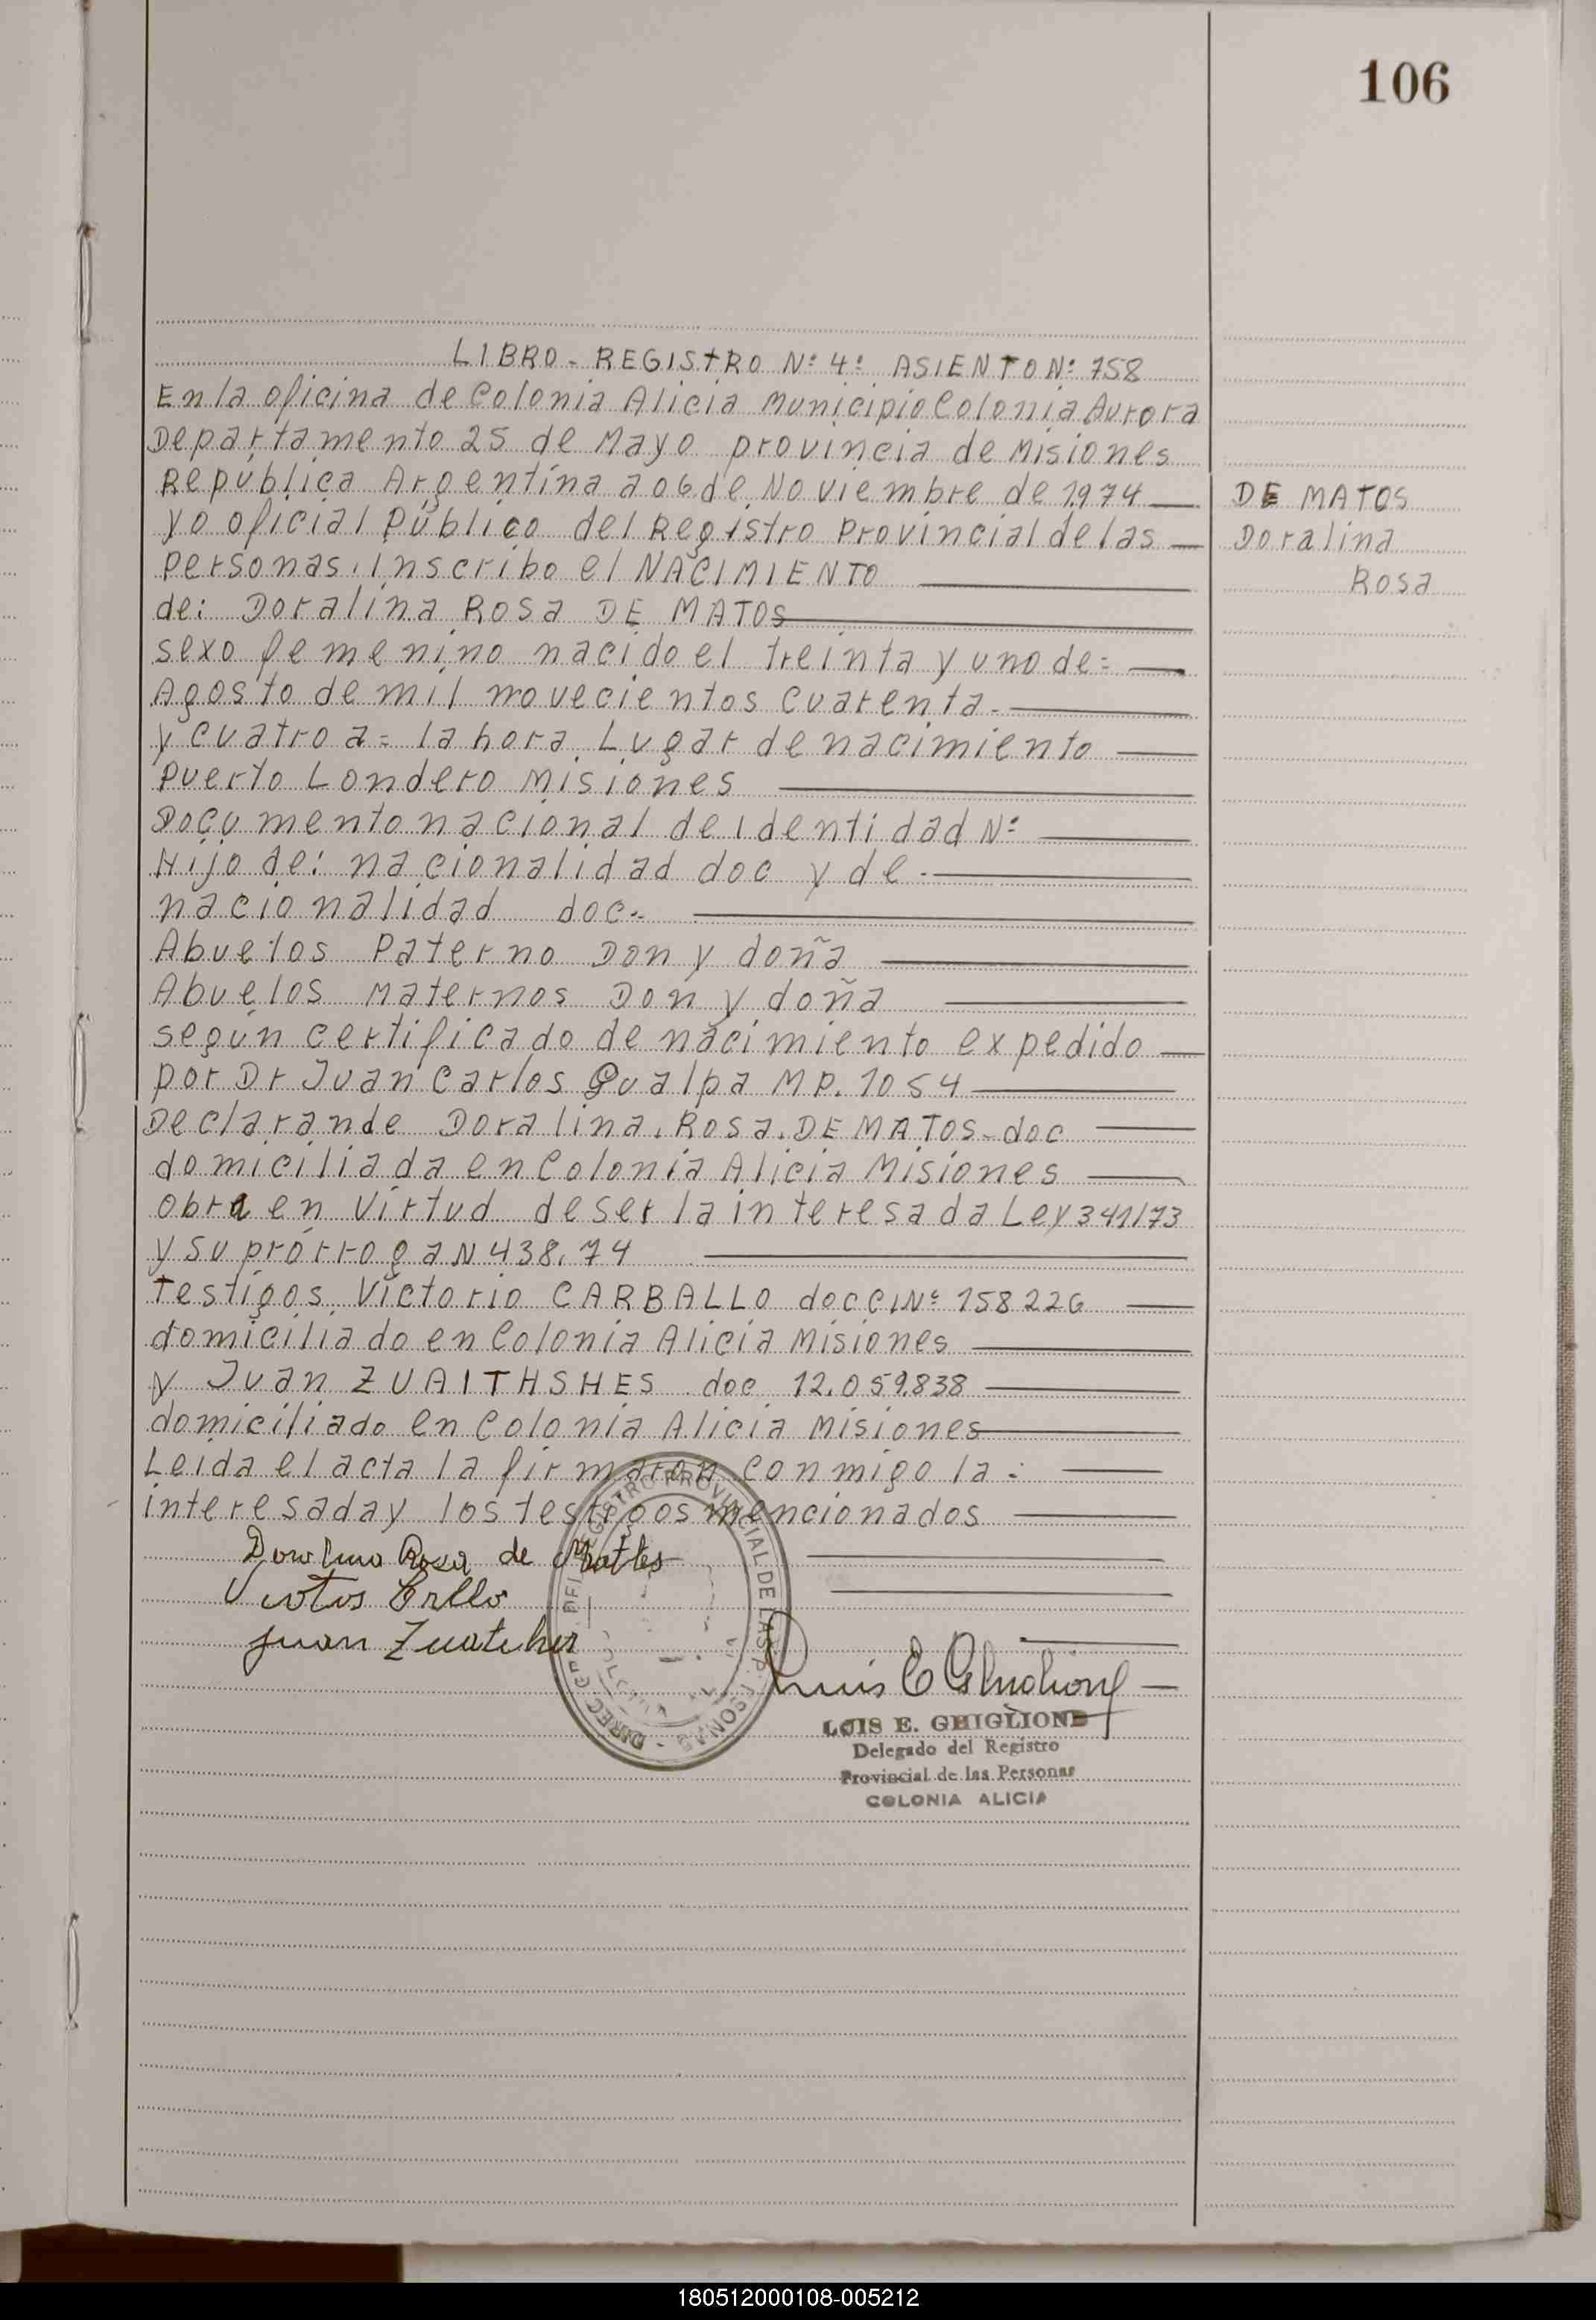 106
LIBRO - REGISTRO Nº 4º ASIENTO Nº 758
En la oficina de Colonia Alicia Municipio Colonia Aurora
Departamento 25 de Mayo provincia de Misiones
República Argentina a 06 de Noviembre de 1974
DE MATOS
yo oficial Público del Registro Provincial de las
Doralina
personas, Inscribo el NACIMIENTO
Rosa
de: Doralina ROSA DE MATOS
sexo femenino nacido el treinta y uno de =
Agosto de mil novecientos cuarenta -
y cuatro a = la hora. Lugar de nacimiento
Puerto Londero Misiones
Documento nacional de Identidad Nº
Hijo de: nacionalidad doc y de -
nacionalidad doc.-
Abuelos Paterno Don y doña
Abuelos Maternos Don y doña
según certificado de nacimiento expedido
por Dr Juan Carlos Gualpa MP. 1054
Declarande Doralina. Rosa. DE MATOS - doc
domiciliada en Colonia Alicia Misiones
obra en virtud de ser la interesada Ley 341/73
y su prórroga N 438.74
Testigos. Victorio CARBALLO doc CI Nº 158226
domiciliado en Colonia Alicia Misiones
y Juan ZUAITHSHES doc 12.059.838
domiciliado en Colonia Alicia Misiones
Leida el acta la firmaron conmigo la :
interesada y los testigos mencionados
DIREC. GRAL. DEL REGISTRO PROVINCIAL DE LAS PERSONAS
Rosa de
Juan
Luis E
LUIS E. GHIGLIONE
Delegado del Registro
Provincial de las Personas
COLONIA ALICIA
180512000108-005212